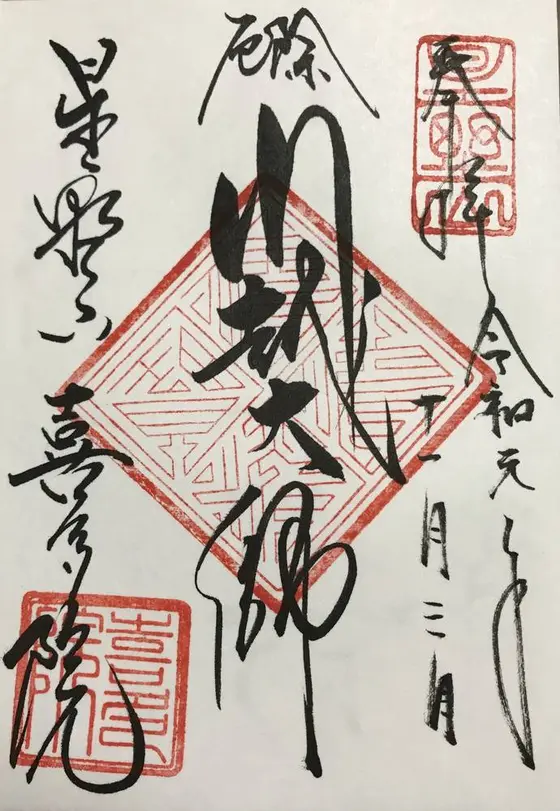 奉拝 令和元年
十一月三日
厄除
川越大師
星野山 喜多院
喜多院